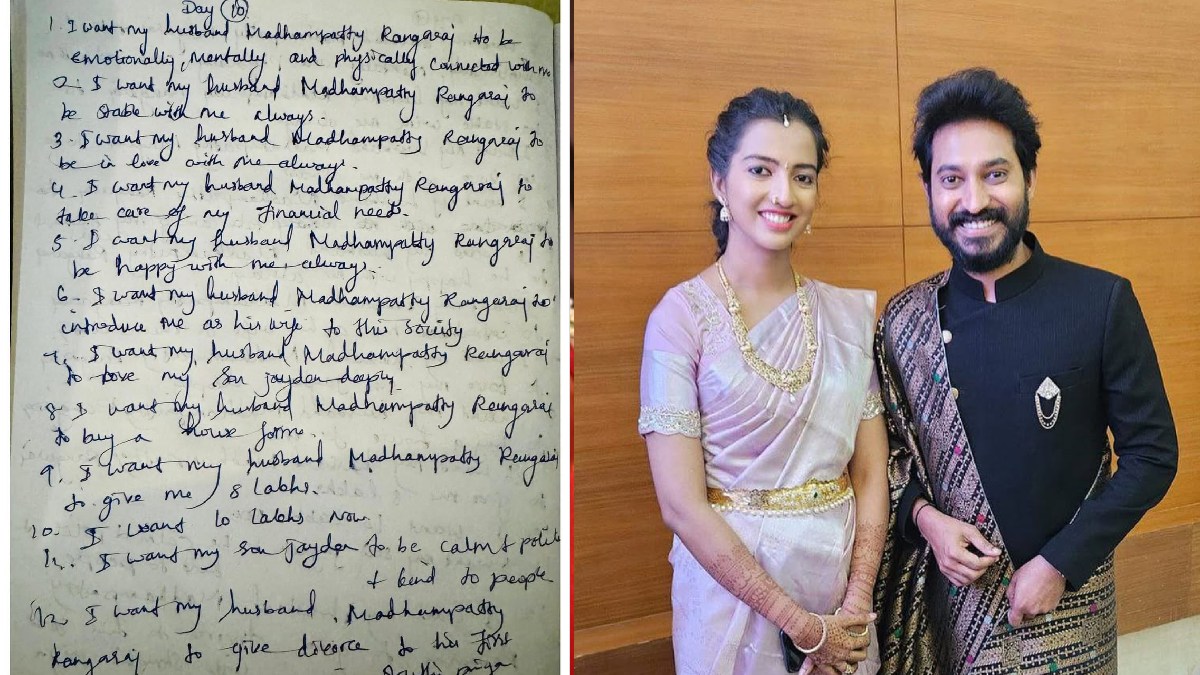 Day 10
1. I want my husband Madhampatty Rangaraj to be
emotionally, mentally, and physically connected with me
2. I want my husband Madhampatty Rangaraj to
be stable with me always.
3. I want my husband Madhampatty Rangaraj to
be in love with me always.
4. I want my husband Madhampatty Rangaraj to
take care of my financial needs.
5. I want my husband Madhampatty Rangaraj to
be happy with me always.
6. I want my husband Madhampatty Rangaraj to
introduce me as his wife to this society
7. I want my husband Madhampatty Rangaraj
to love my son jayden deeply
8. I want my husband Madhampatty Rangaraj
to buy a house for me.
9. I want my husband Madhampatty Rangaraj
to give me 8 labhs.
10. I want 10 labhs now
11. I want my son jayden to be calm + polite
+ kind to people
12. I want my husband Madhampatty
Rangaraj to give divorce to his first